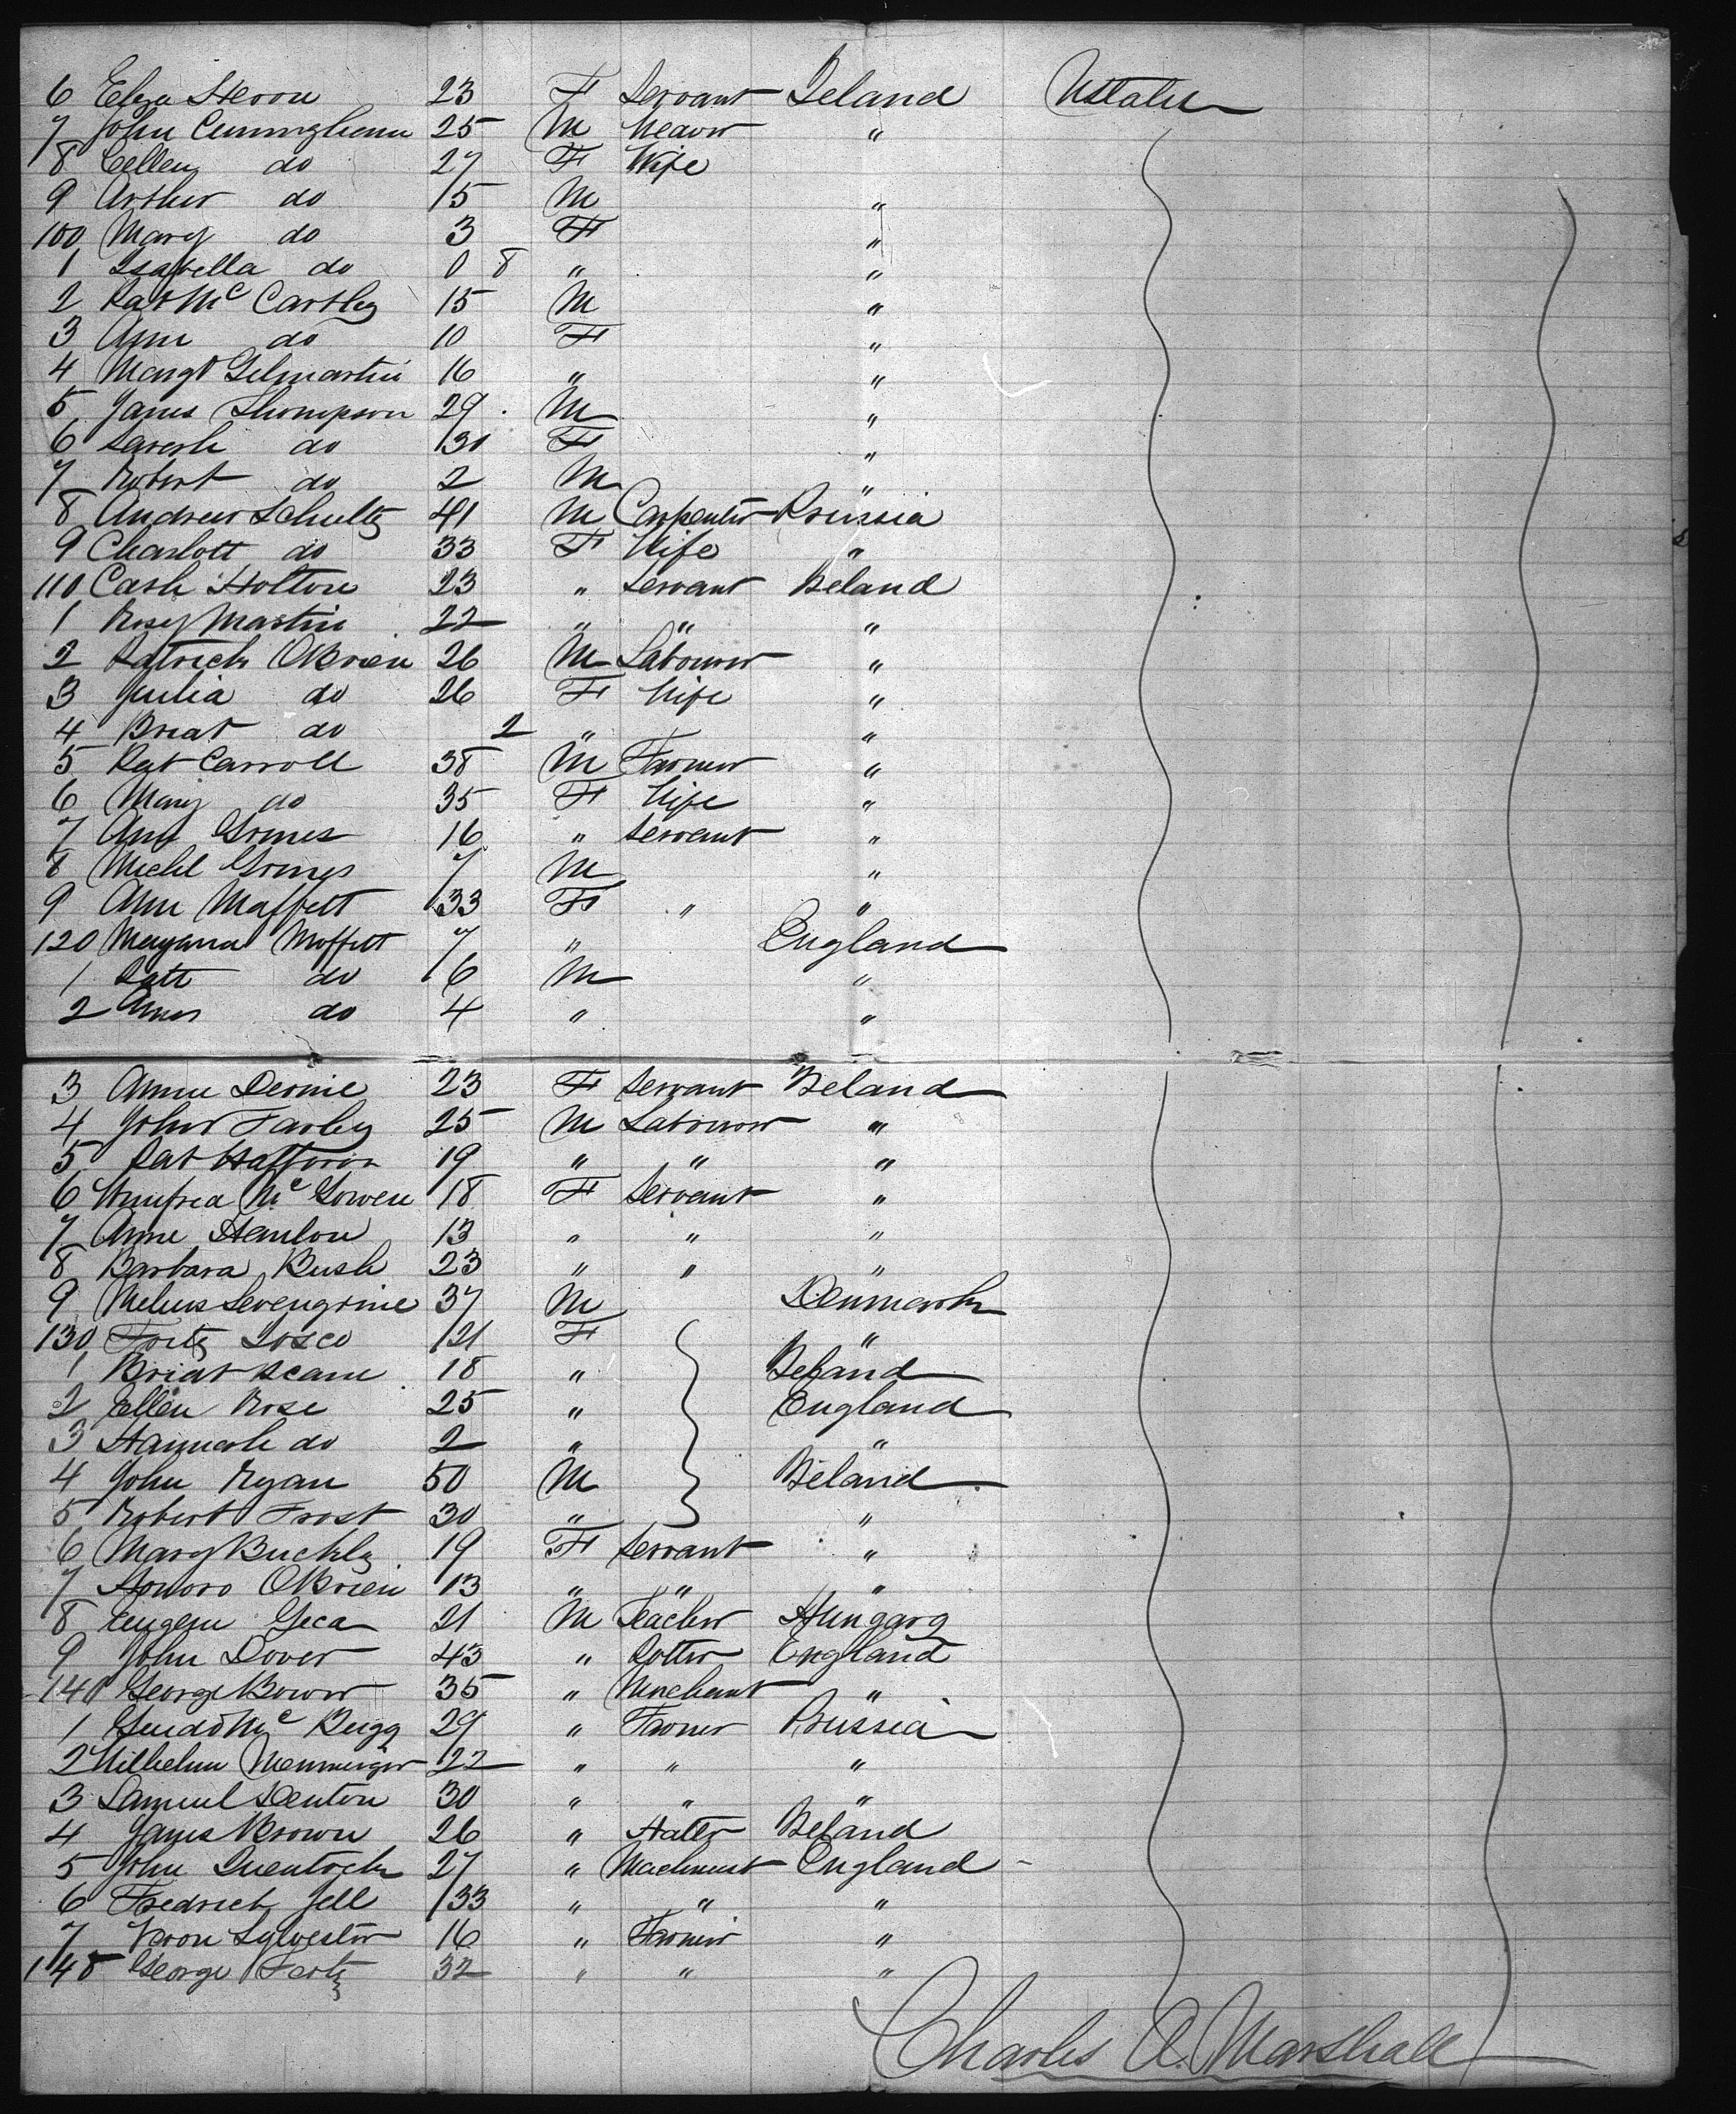 6 Eliza Heron 23 F Servant Ireland U States
7 John Cunningham 25 M "
8 Ellen do 27 F Wife
9 Arthur do 15 M "
100 Mary do 3 F "
1 Isabella do 0 8 " "
2 Pat McCarthy 15 M "
3 Ann do 10 F "
4 Margt Gilmartin 16 " "
5 James Thompson 29 M "
6 Sarah do 30 F "
7 Robert do 2 M "
8 Andrew Schultz 41 M Carpenter Prussia
9 Charlott do 33 F Wife "
110 Cath Holton 23 " Servant Ireland
1 Rosy Martin 22 " " "
2 Patrick OBrien 26 M Labourer "
3 Julia do 26 F Wife "
4 Bridt do 2 " "
5 Pat Carroll 38 M Farmer "
6 Mary do 35 F Wife "
7 Ann Grimes 16 " Servant "
8 Michl Grimes 7 M "
9 Ann Moffett 33 F " "
120 Maryanna Moffett 7 " England
1 Patt do 6 M "
2 do 4 " "
3 Anne 23 F Servant Ireland
4 John Farley 25 M Labourer "
5 Pat 19 " " "
6 Winifred McGowen 18 F Servant "
7 Anne Hanlon 13 " " "
8 Barbara Bush 23 " " "
9 37 M Denmark
130 21 F "
1 Bridt 18 " Ireland
2 Ellen Rose 25 " England
3 Hannah do 2 " "
4 John Ryan 50 M Ireland
5 Robert Frost 30 " "
6 Mary Buckly 19 F Servant "
7 Honoro OBrien 13 " " "
8 Eugene Geca 21 M Teacher Hungary
9 John Dover 43 " Potter England
140 George Bower 35 " Merchant "
1 29 " Farmer Prussia
2 Wilhelm Memminger 22 " " "
3 Samuel Denton 30 " " "
4 James Brown 26 " Hatter Ireland
5 John 27 " Machinist England
6 Fredrick Jell 33 " " "
7 Sylvester 16 " Farmer "
148 George 32 " " "
Charles A. Marshall